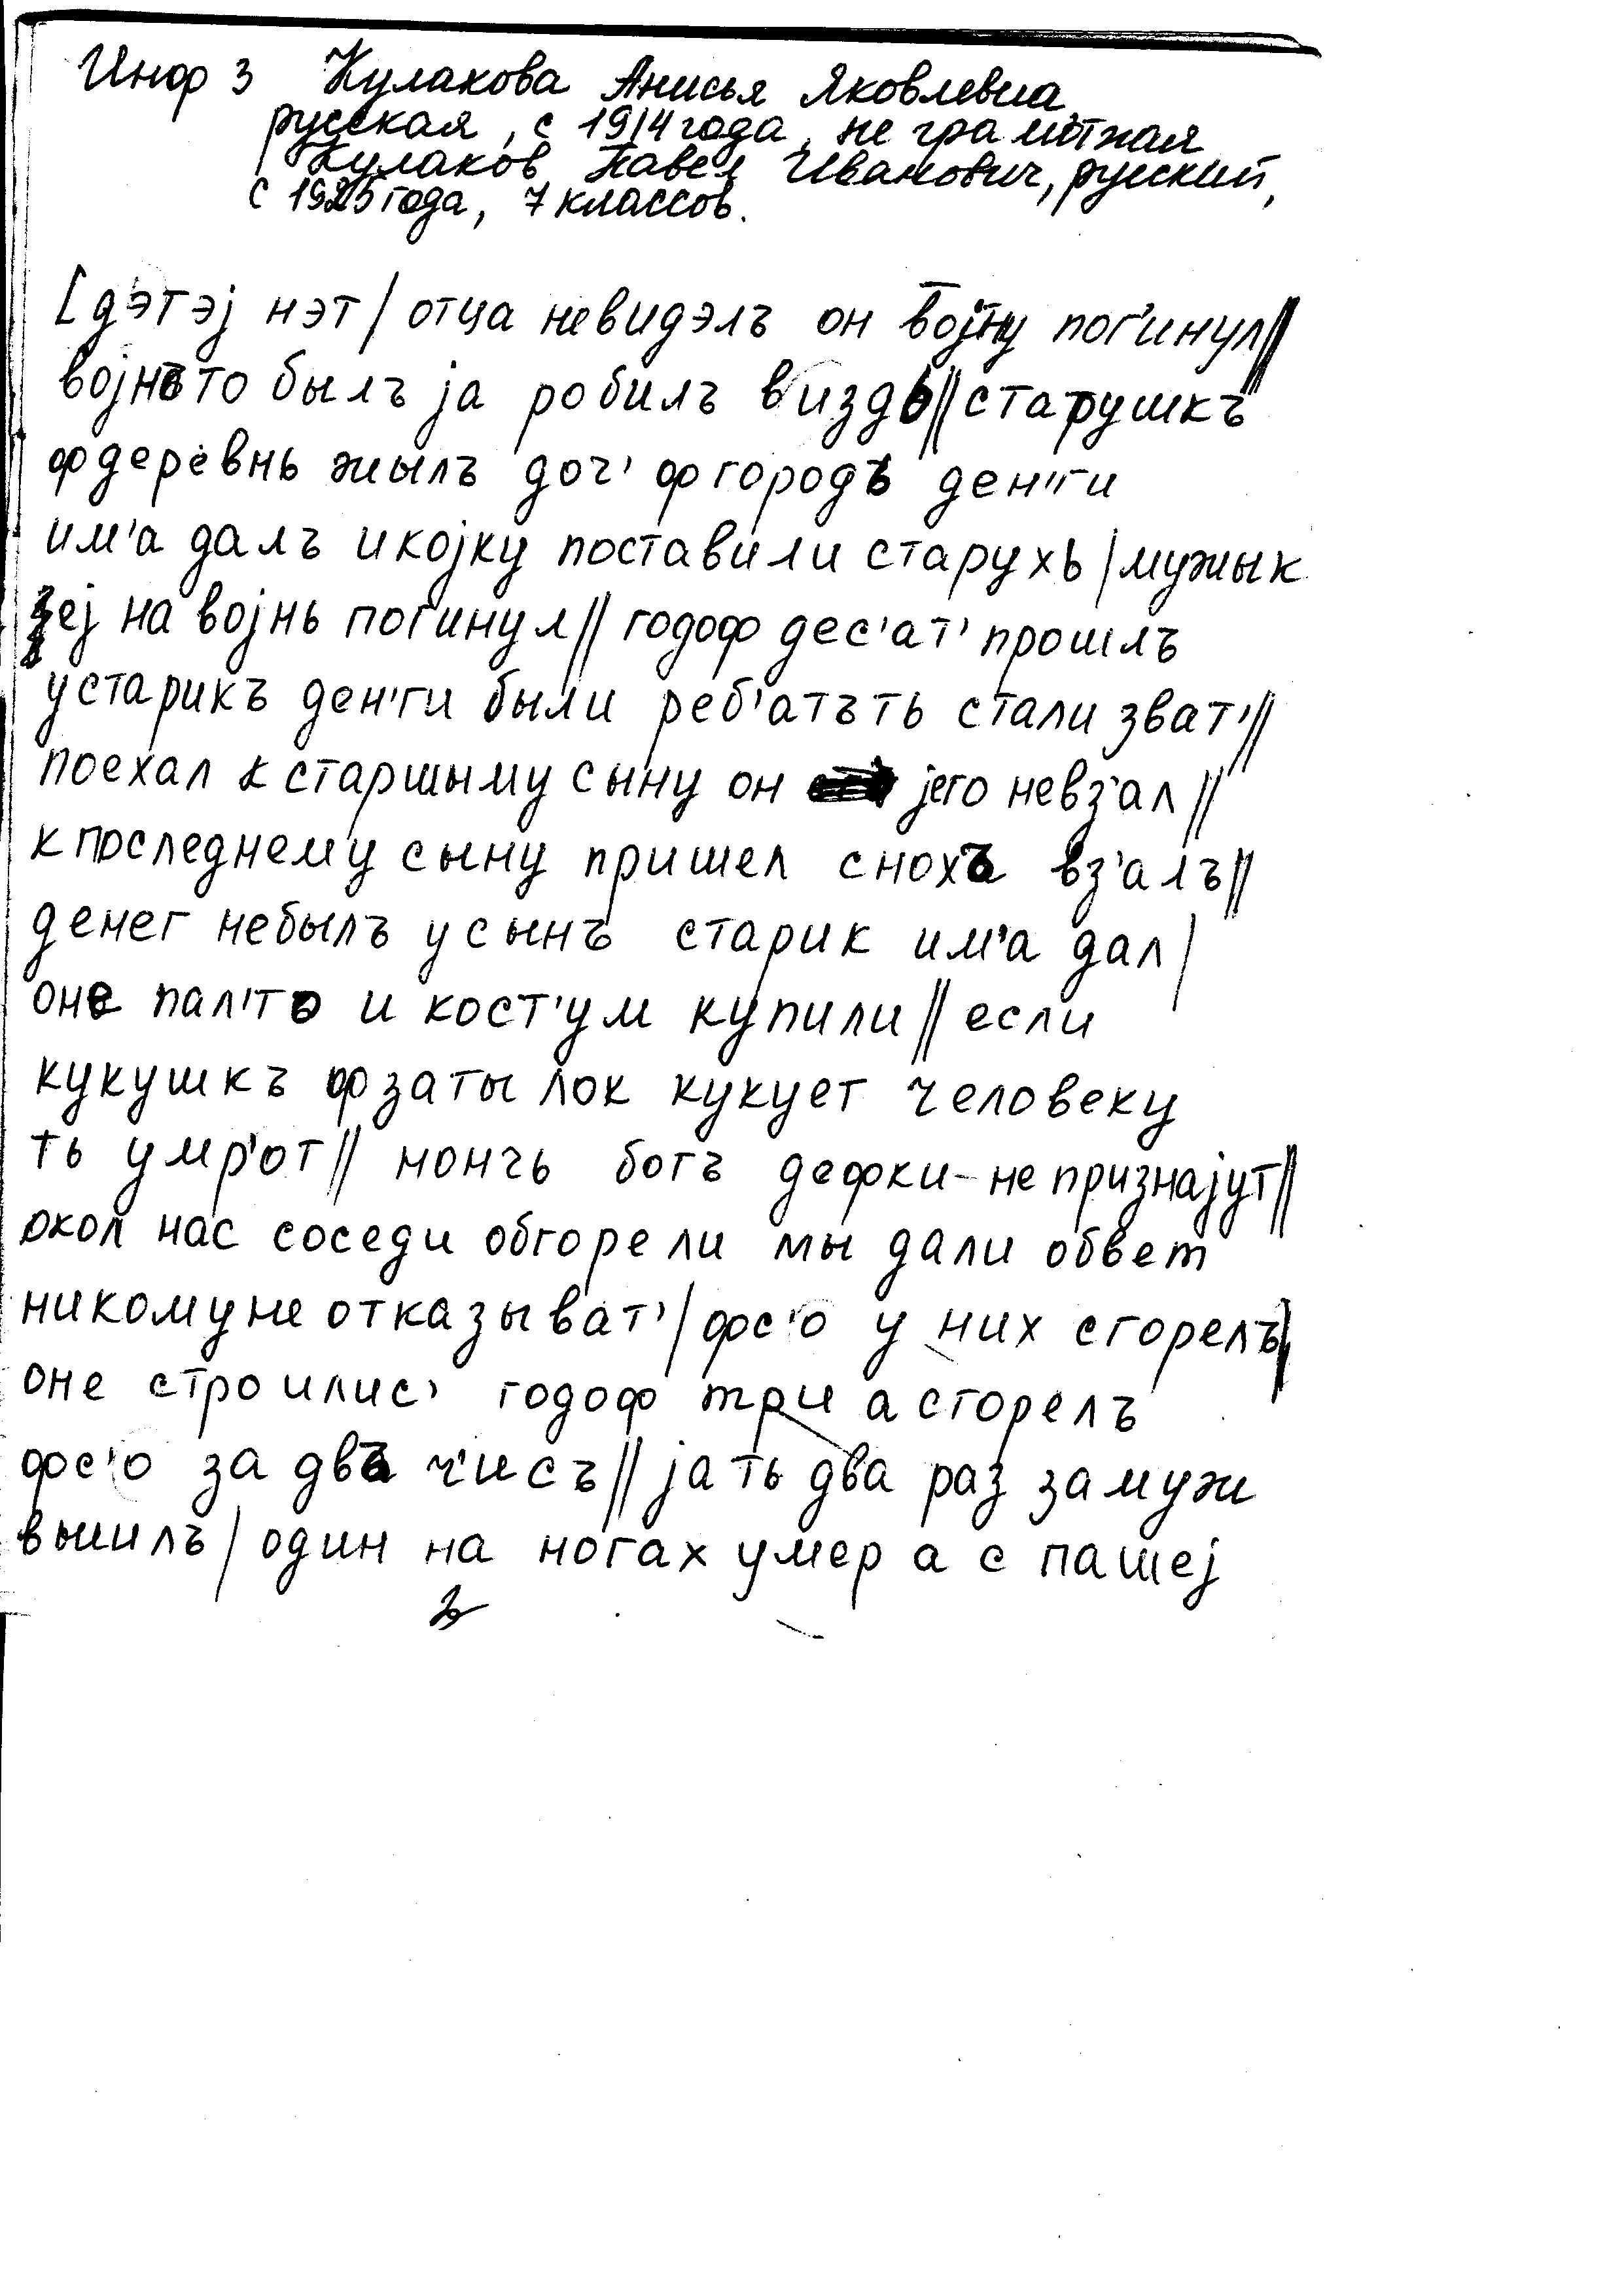 Инф 3 Кулакова Анисья Яковлевна
русская, с 1914 года, не грамотная
Кулаков Павел Иванович, русский,
с 1925 года, 7 классов.
[дэтэј нэт/ отца невидэлъ он војну пог'инул//
војнъто былъ ја робилъ виздь// старушкъ
фдеревнь жылъ доч' фгородъ ден'ги
им'а далъ икојку поставили старухь/ мужык
еј на војнь пог'инул// годоф дес'ат' прошлъ
устарикъ ден'ги были реб'атъть стали зват'//
поехал к старшыму сыну он јего невз'ал//
к последнему сыну пришел снохъ вз'алъ//
денег небылъ усынъ старик им'а дал/
оне пал'то и кост'ум купили// если
кукушкъ фзатылок кукует человеку
ть умр'от// нончь богъ дефки-не признајут//
окол нас соседи обгорели мы дали обвет
никому не отказыват'/ фс'о у них сгорелъ/
оне строилис' годоф три а сгорелъ
фс'о за двъ ч'исъ// јать два раз замуж
вышлъ/ один на ногах умер а с пашеј